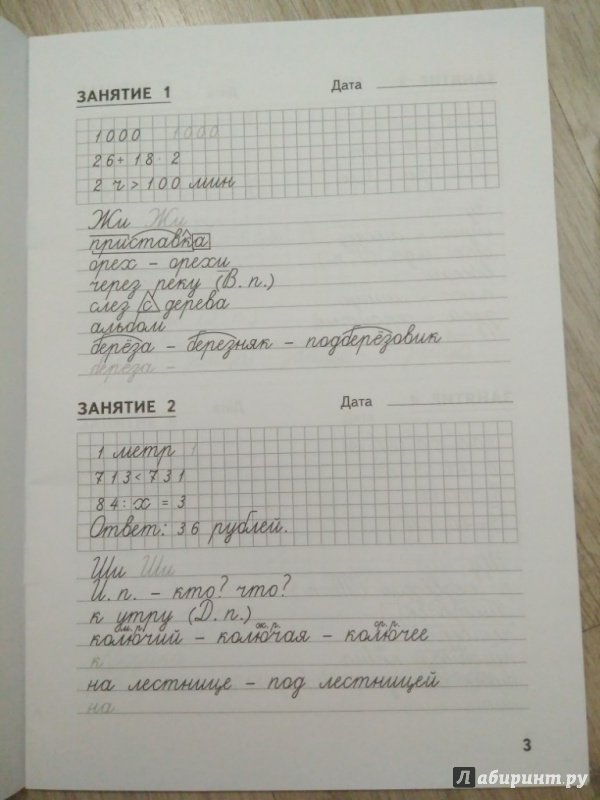 ЗАНЯТИЕ 1 Дата
1000 1000
26+ 18 · 2
2 ч > 100 мин
Жи Жи
приставка
орех – орехи
через реку (В. п.)
слез с дерева
альбом
берёза – березняк – подберёзовик
берёза –
ЗАНЯТИЕ 2 Дата
1 метр 1
713 < 731
84 : х = 3
Ответ: 36 рублей.
Ши Ши
И. п. – кто? что?
к утру (Д. п.)
м. р. ж. р. ср. р.
колючий – колючая – колючее
к
на лестнице – под лестницей
на
3
Лабиринт.ру